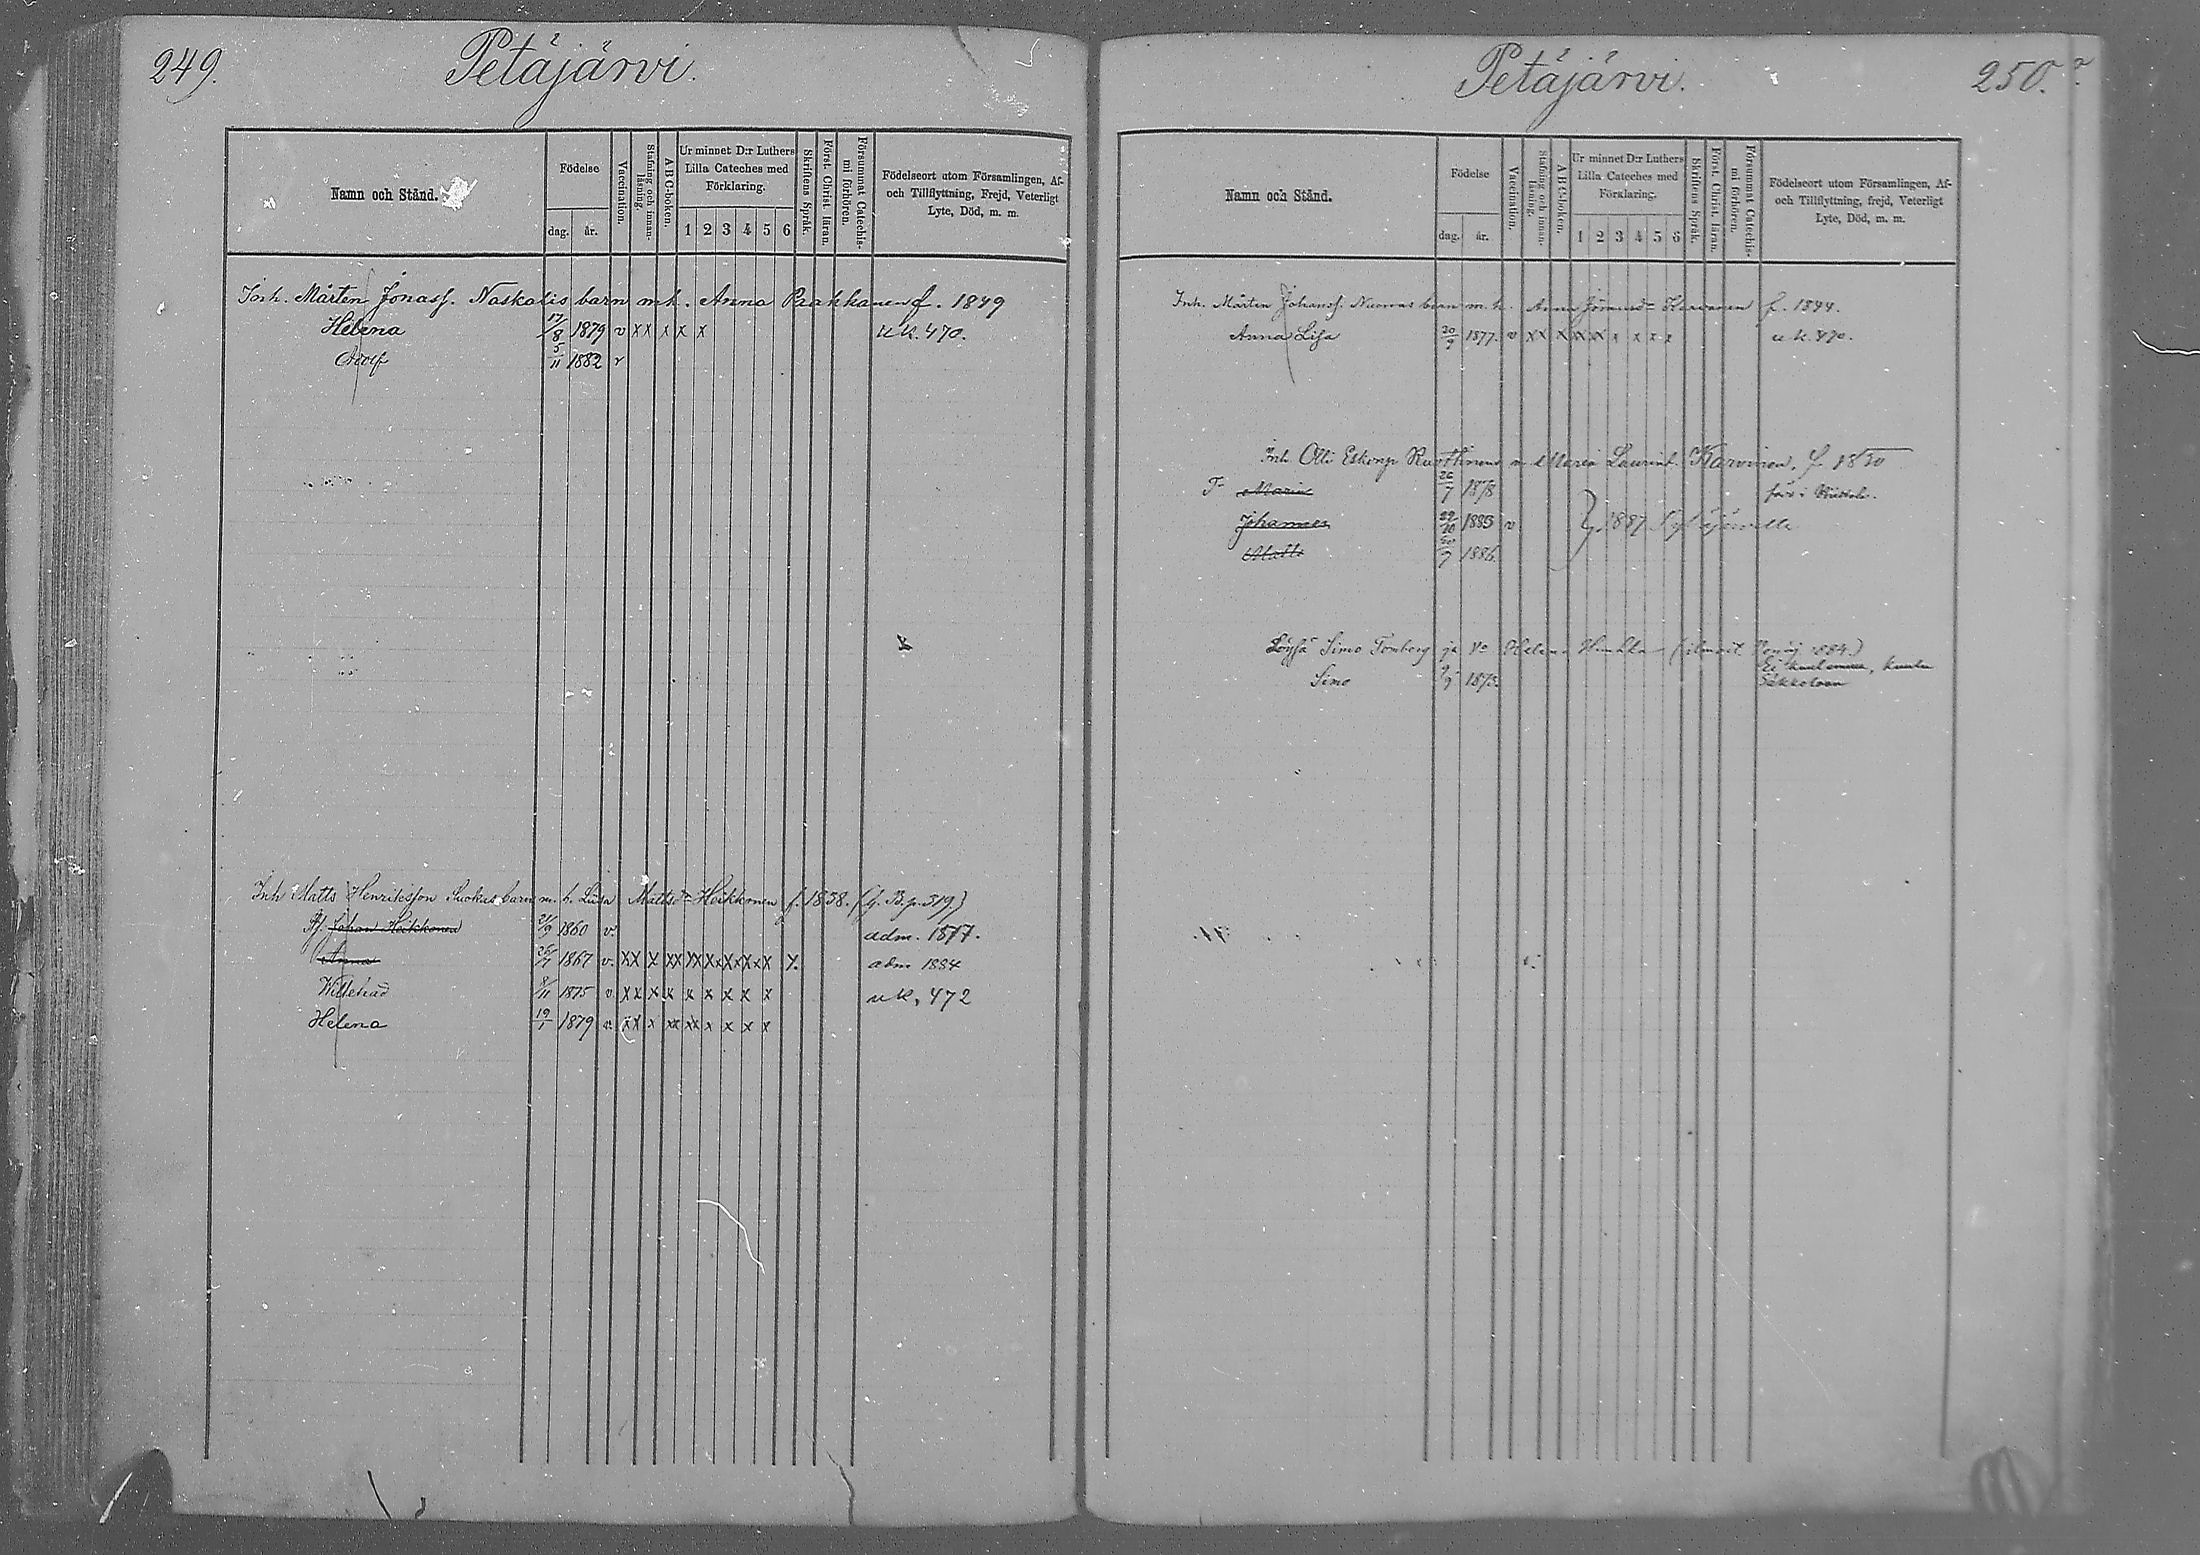 249.
Petäjärvi.
Namn och Stånd.
Födelse
dag.
år.
Vaccination.
Stafning och innan-
läsning.
A B C-boken.
Ur minnet D:r Luthers
Lilla Cateches med
Förklaring.
1 2 3 4 5 6
Skriftens Språk.
Först. Christ. läran.
Försummat Catechis-
mi förhören.
Födelseort utom Församlingen, Af-
och Tillflyttning, Frejd, Veterligt
Lyte, Död, m. m.
Inh. Mårten Jonass. Naskalis barn m.h. Anna Paakkanen f. 1849
Helena 17/8 1879 v xx x x x u k. 470.
Adolf 5/11 1882 v
Inh Matts Henriksson Suokas barn m. h. Lisa Mattsd Heikkonen f. 1838. (f. B. p. 519)
Johan Heikkonen 21/9 1860 v. adm. 1877.
Anna 1867 v. adm 1884
Willehad 1875 v u k. 472
Helena 19/1 1879 v.
Petäjärvi.
250.
Namn och Stånd.
Födelse
dag.
år.
Vaccination.
Stafning och innan-
läsning.
A B C-boken.
Ur minnet D:r Luthers
Lilla Cateches med
Förklaring.
1 2 3 4 5 6
Skriftens Språk.
Först. Christ. läran.
Försummat Catechis-
mi förhören.
Födelseort utom Församlingen, Af-
och Tillflyttning, frejd, Veterligt
Lyte, Död, m. m.
Inh. Mårten Johanss. barn m. h. Anna f. 1844.
Anna Lisa 30/9 1877. v u k. 470.
Inh. Olli m. Maria Laurint. Karvinen, f. 1850
Maria 26/7 1878
Johannes 1885 v 1887
Matts 1886
Simo Tomberg ja Vo Helena 1884.)
Simo 1873. Ei
Säkkolaan